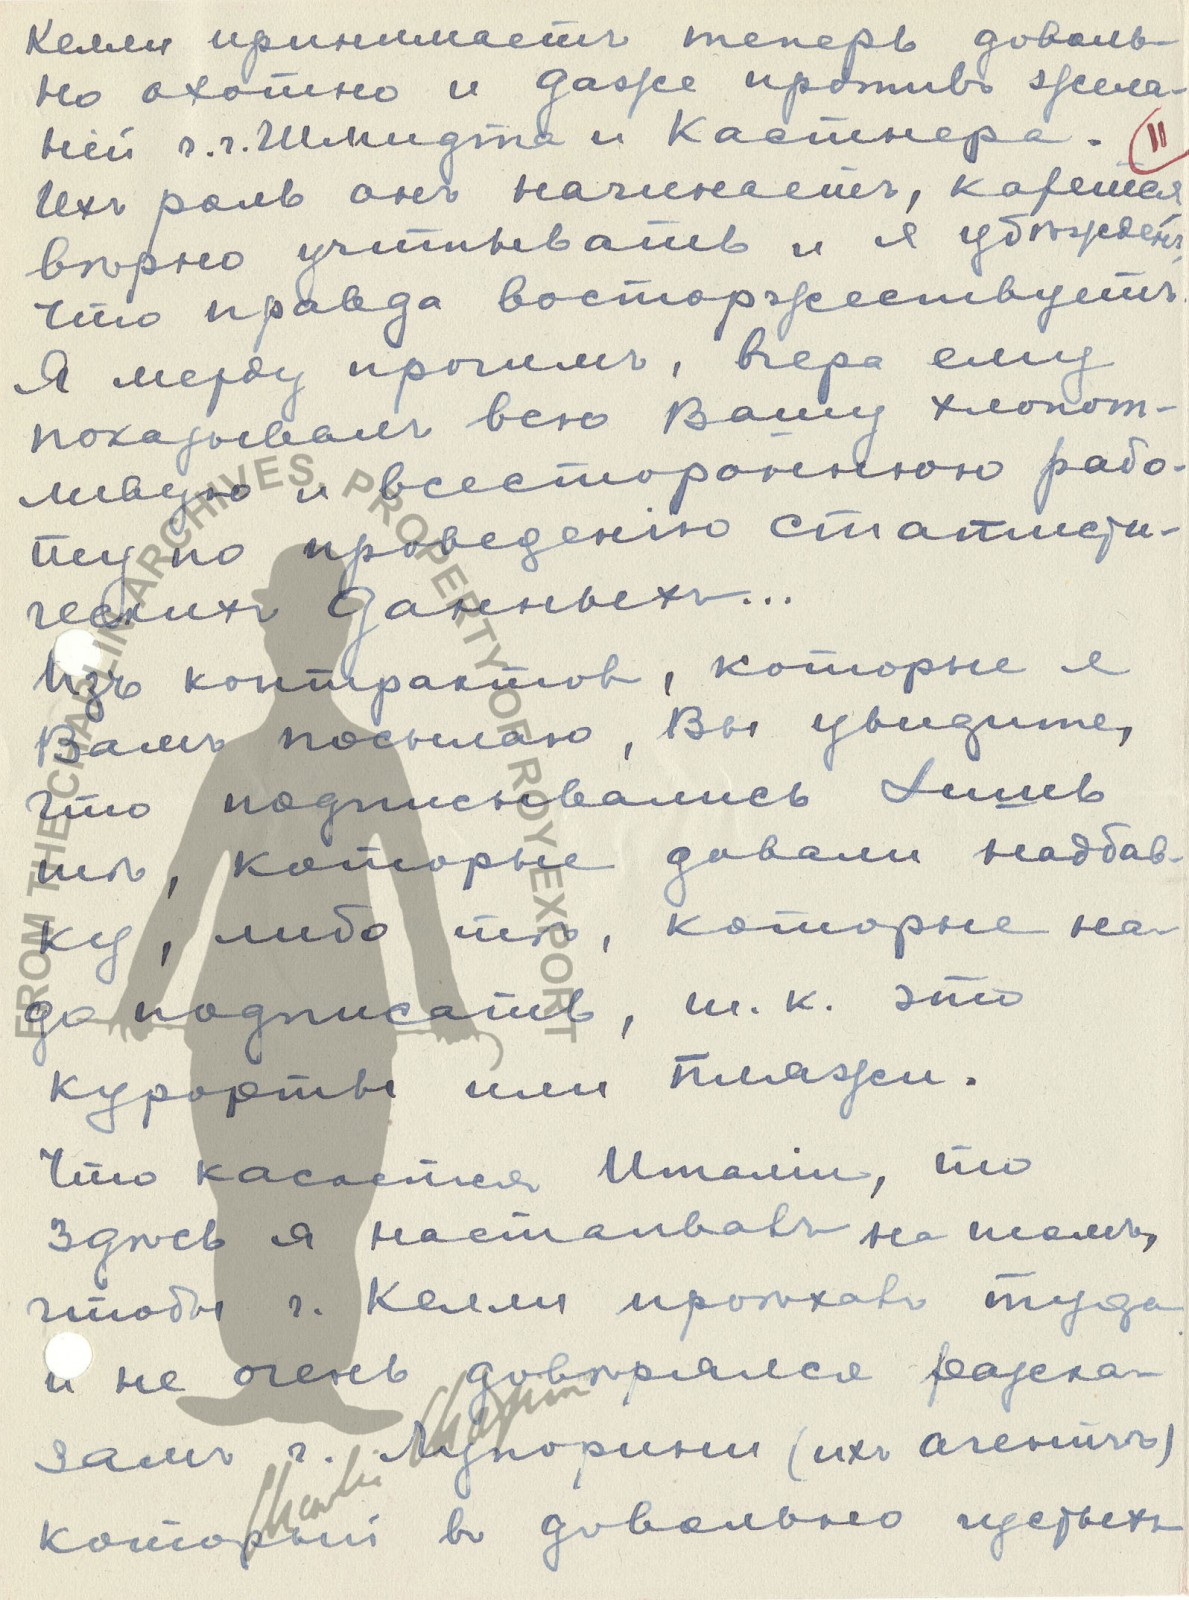 Келли принимаетъ теперь доволь-
но охотно и даже противъ жела-
ній г.г. Шмидта и Кастнера. II
Ихъ роль онъ начинаетъ, кажется
вѣрно учитывать и я убѣжденъ,
что правда восторжествуетъ.
Я между прочимъ, вчера ему
показывалъ всю Вашу хлопот-
ливую и всестороннюю рабо-
ту по проведенію статисти-
ческихъ данныхъ...
Изъ контрактов, которые я
Вамъ посылаю, Вы увидите,
что подписывались Лишь
тѣ, которые давали надбав-
ку, либо тѣ, которые на-
до подписать, т. к. это
курорты или пляжи.
Что касается Италіи, то
здѣсь я настаивавъ на томъ,
чтобы г. Келли проѣхавъ туда
и не очень довѣрялся разска-
замъ г. Лупорини (ихъ агентъ)
который въ довольно пустыхъ
FROM THE CHAPLIN ARCHIVES, PROPERTY OF ROY EXPORT
Charlie Chaplin